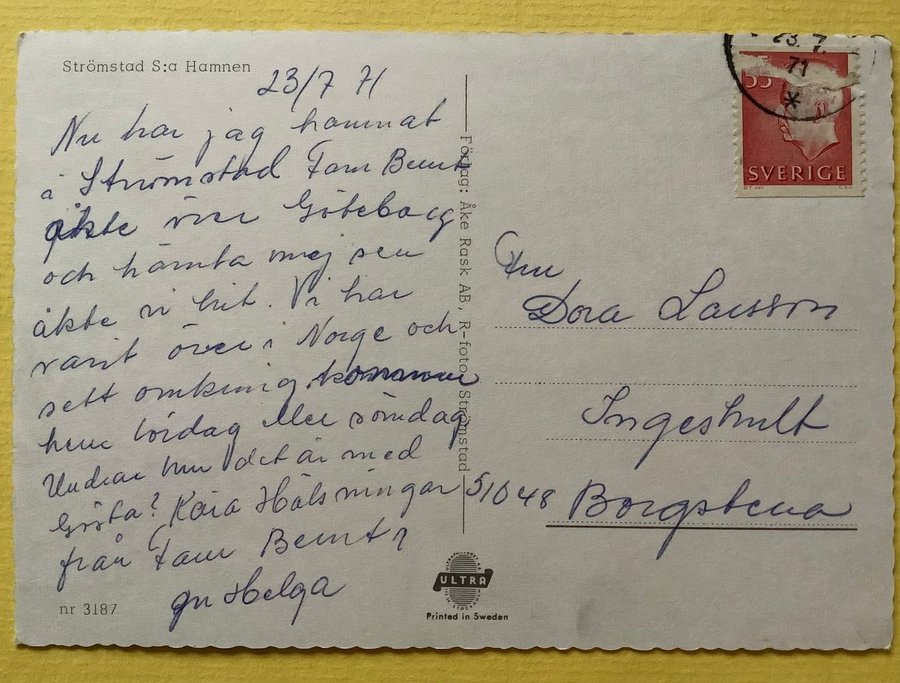 Strömstad S:a Hamnen
23/7 71
Nu har jag hamnat
i Strömstad Fam Bernt
åkte över Göteborg
och hämta mej sen
åkte vi hit. Vi har
varit över i Norge och
sett omkring kommer
hem lördag eller söndag
Undrar hur det är med
Gösta? Kära Hälsningar
från Fam Bernt
gm Helga
nr 3187
Förlag: Åke Rask AB, R-foto, Strömstad
ULTRA
Printed in Sweden
23. 7.
71
*
55
SVERIGE
Fru
Dora Larsson
Ingeshult
51048 Borgstena